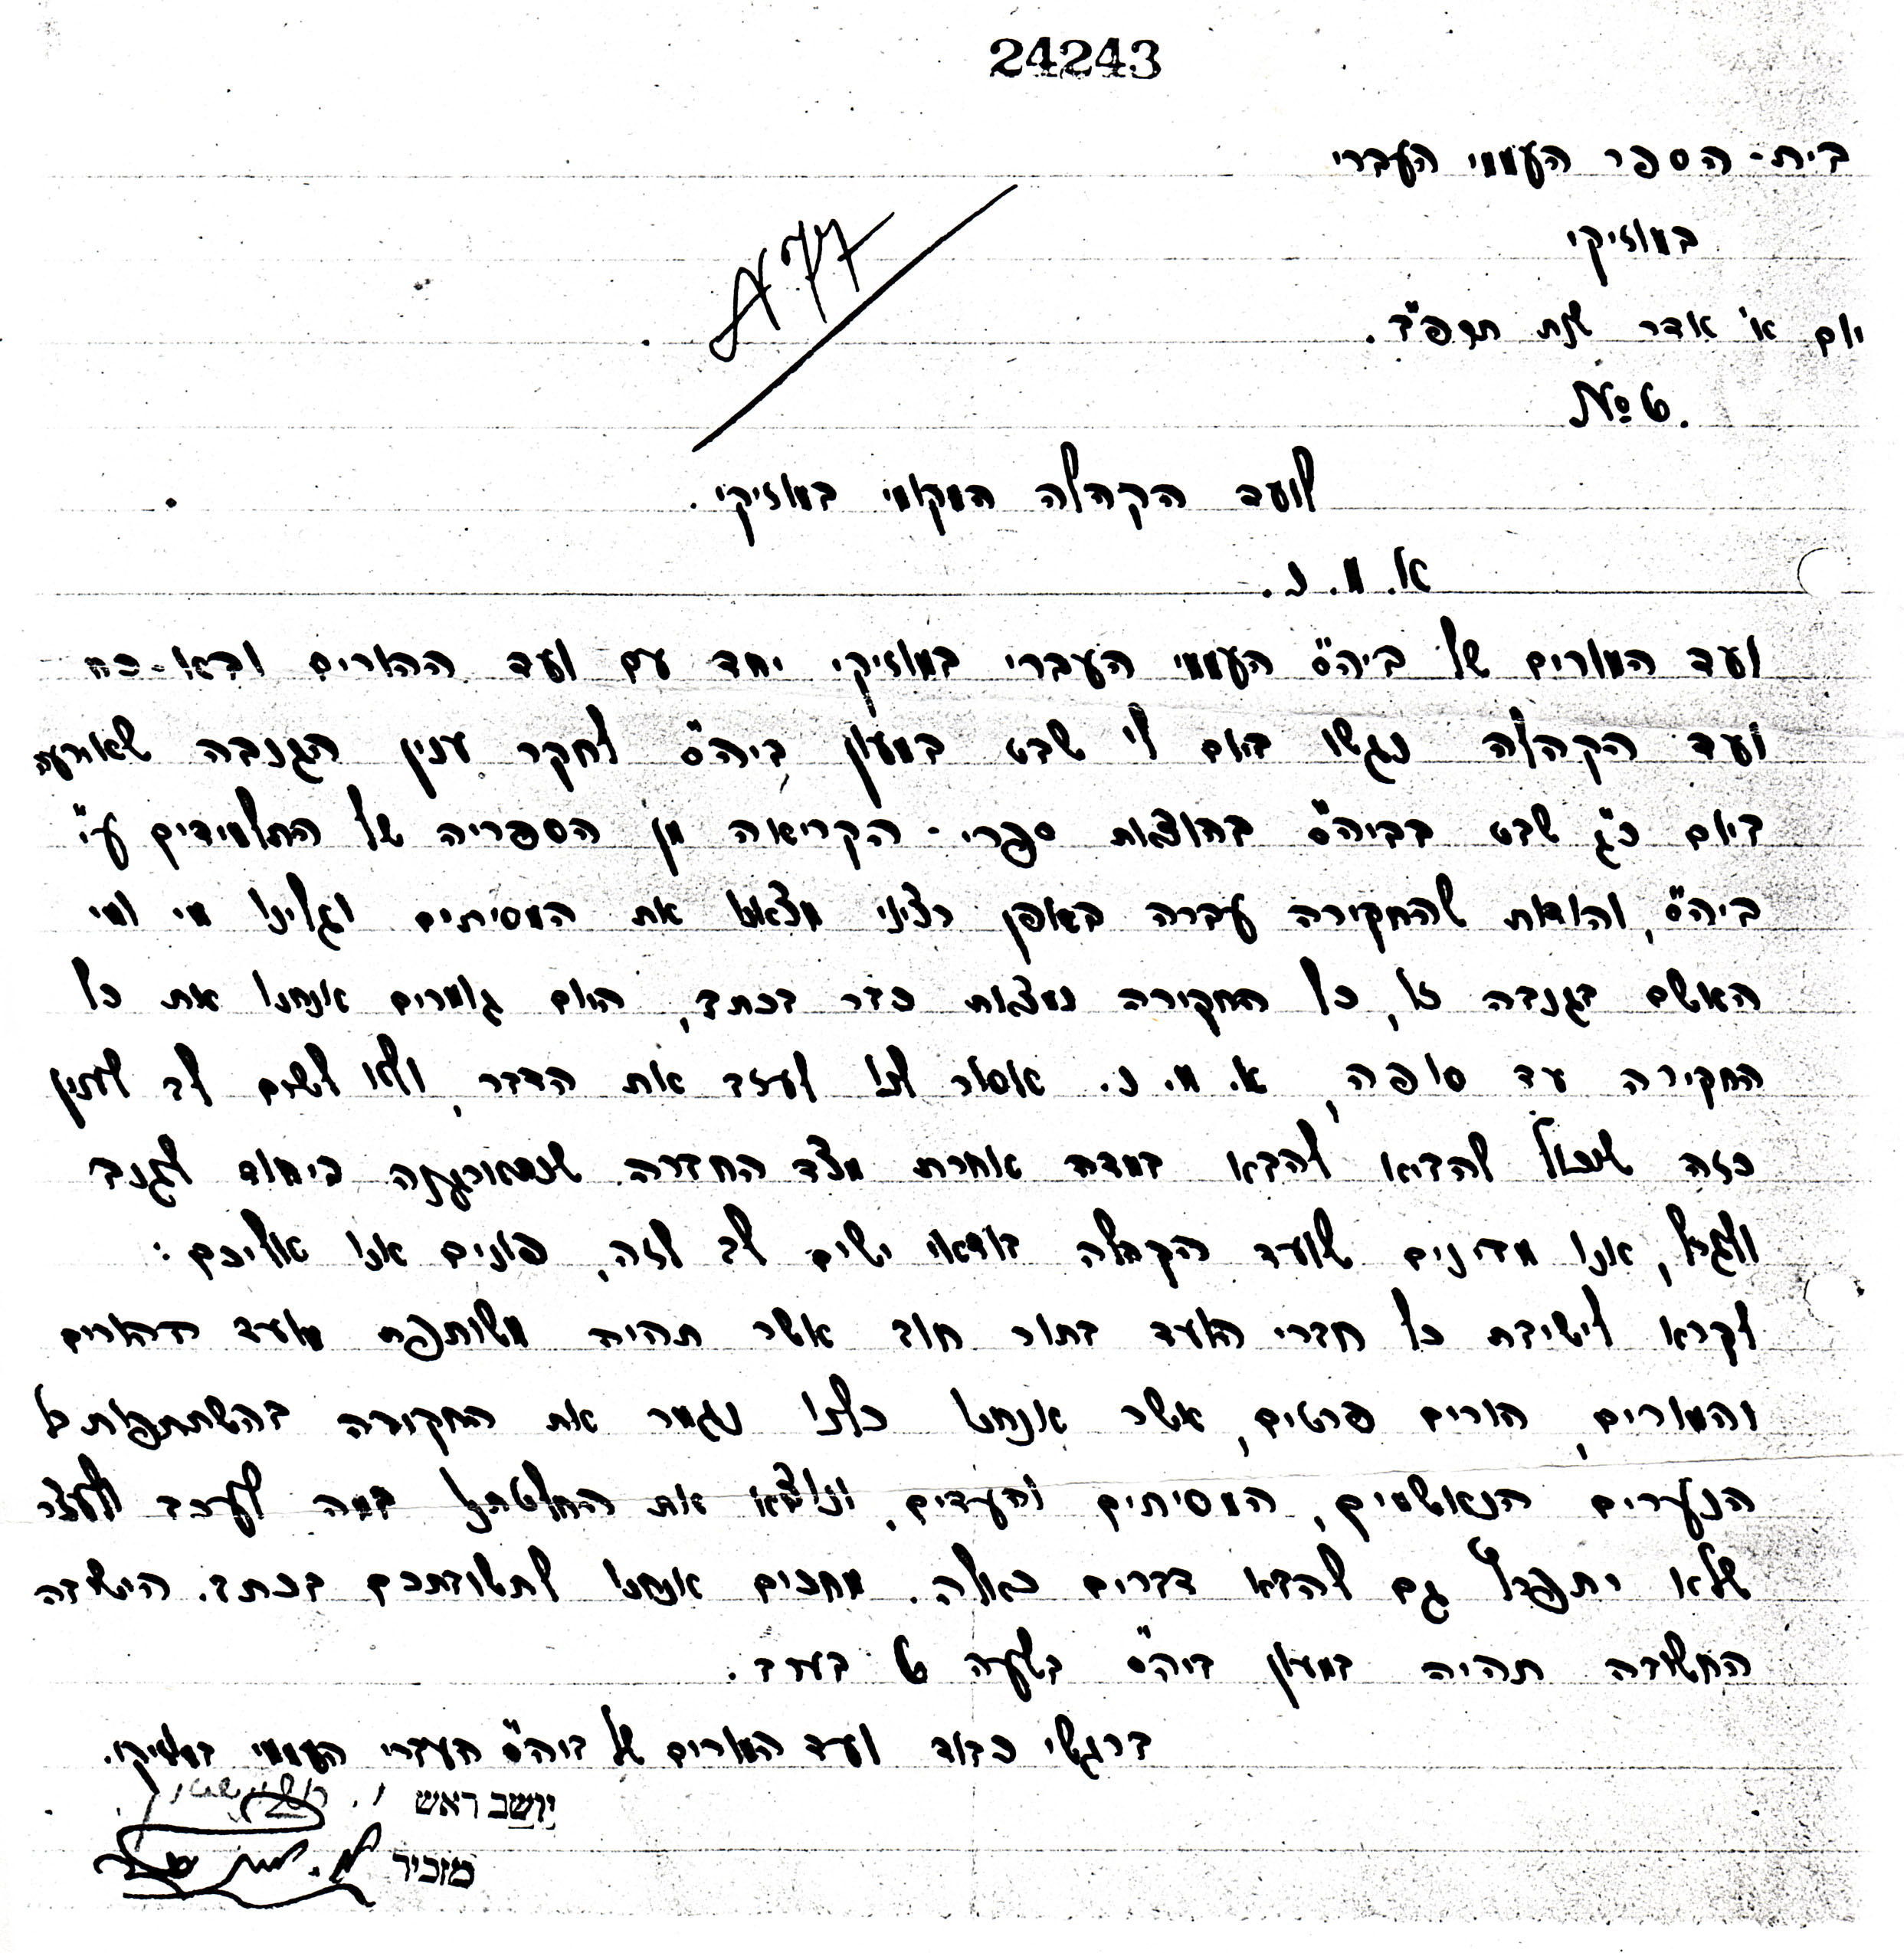 24243
בית-הספר העממי העברי
במוזיקי
A 77
יום א' אדר שנת תרפ"ד.
№ 6.
לועד הקהלה המקומי במוזיקי.
א. מ. נ.
ועד המורים של ביה"ס העממי העברי במוזיקי יחד עם ועד ההורים ובאו-כח
ועד הקהלה נגשו ביום ל' שבט במעון ביה"ס לחקר ענין הגנבה שאורעה
ביום כ"ג שבט בביה"ס בהוצאת ספרי-הקריאה מן הספריה של התלמידים ע"י
ביה"ס, והודות שהחקירה עברה באופן רציני מצאנו את המסיתים וגלינו מי ומי
האשם בגנבה זו, כל החקירה נמצאת כבר בכתב, היום גומרים אנחנו את כל
החקירה עד סופה, א. מ. נ. אסור לנו לעזב את הדבר, ולא לשים לב לענין
כזה שיכול להביא להבא במדה אחרת מצד החברה שנתארגנה ביחוד לגנב
ולגזל, אנו מבינים שועד הקהלה בודאי ישים לב לזה, פונים אנו אליכם:
לקרא לישיבת כל חברי הועד בתור חוב אשר תהיה משותפת מועד ההורים
והמורים, הורים פרטים, אשר אנחנו כלנו נגמר את החקירה בהשתתפות כל
הנערים הנאשמים, המסיתים והעדים, ונוציא את החלטתנו במה לעכב ולעצר
שלא יתפזל גם להבא דברים כאלה. מחכים אנחנו לתשובתכם בכתב. הישיבה
החשובה תהיה במעון ביה"ס בשעה 6 בערב.
ברגשי כבוד ועד המורים של ביה"ס העברי העממי במוזיקי.
יושב ראש
מזכיר